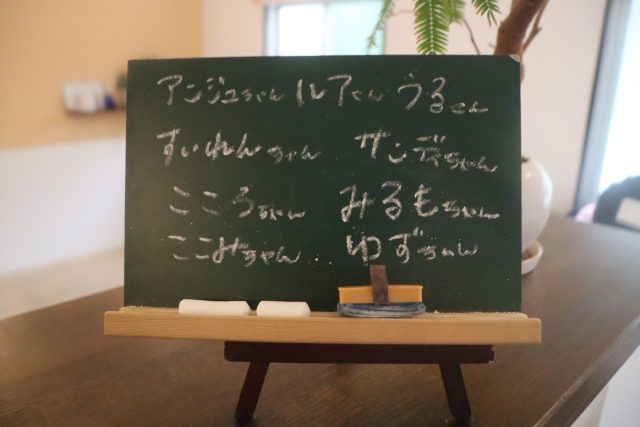 アンジュちゃん ルアくん うるくん
すいれんちゃん サンディちゃん
こころちゃん みるもちゃん
ここみちゃん ゆずちゃん